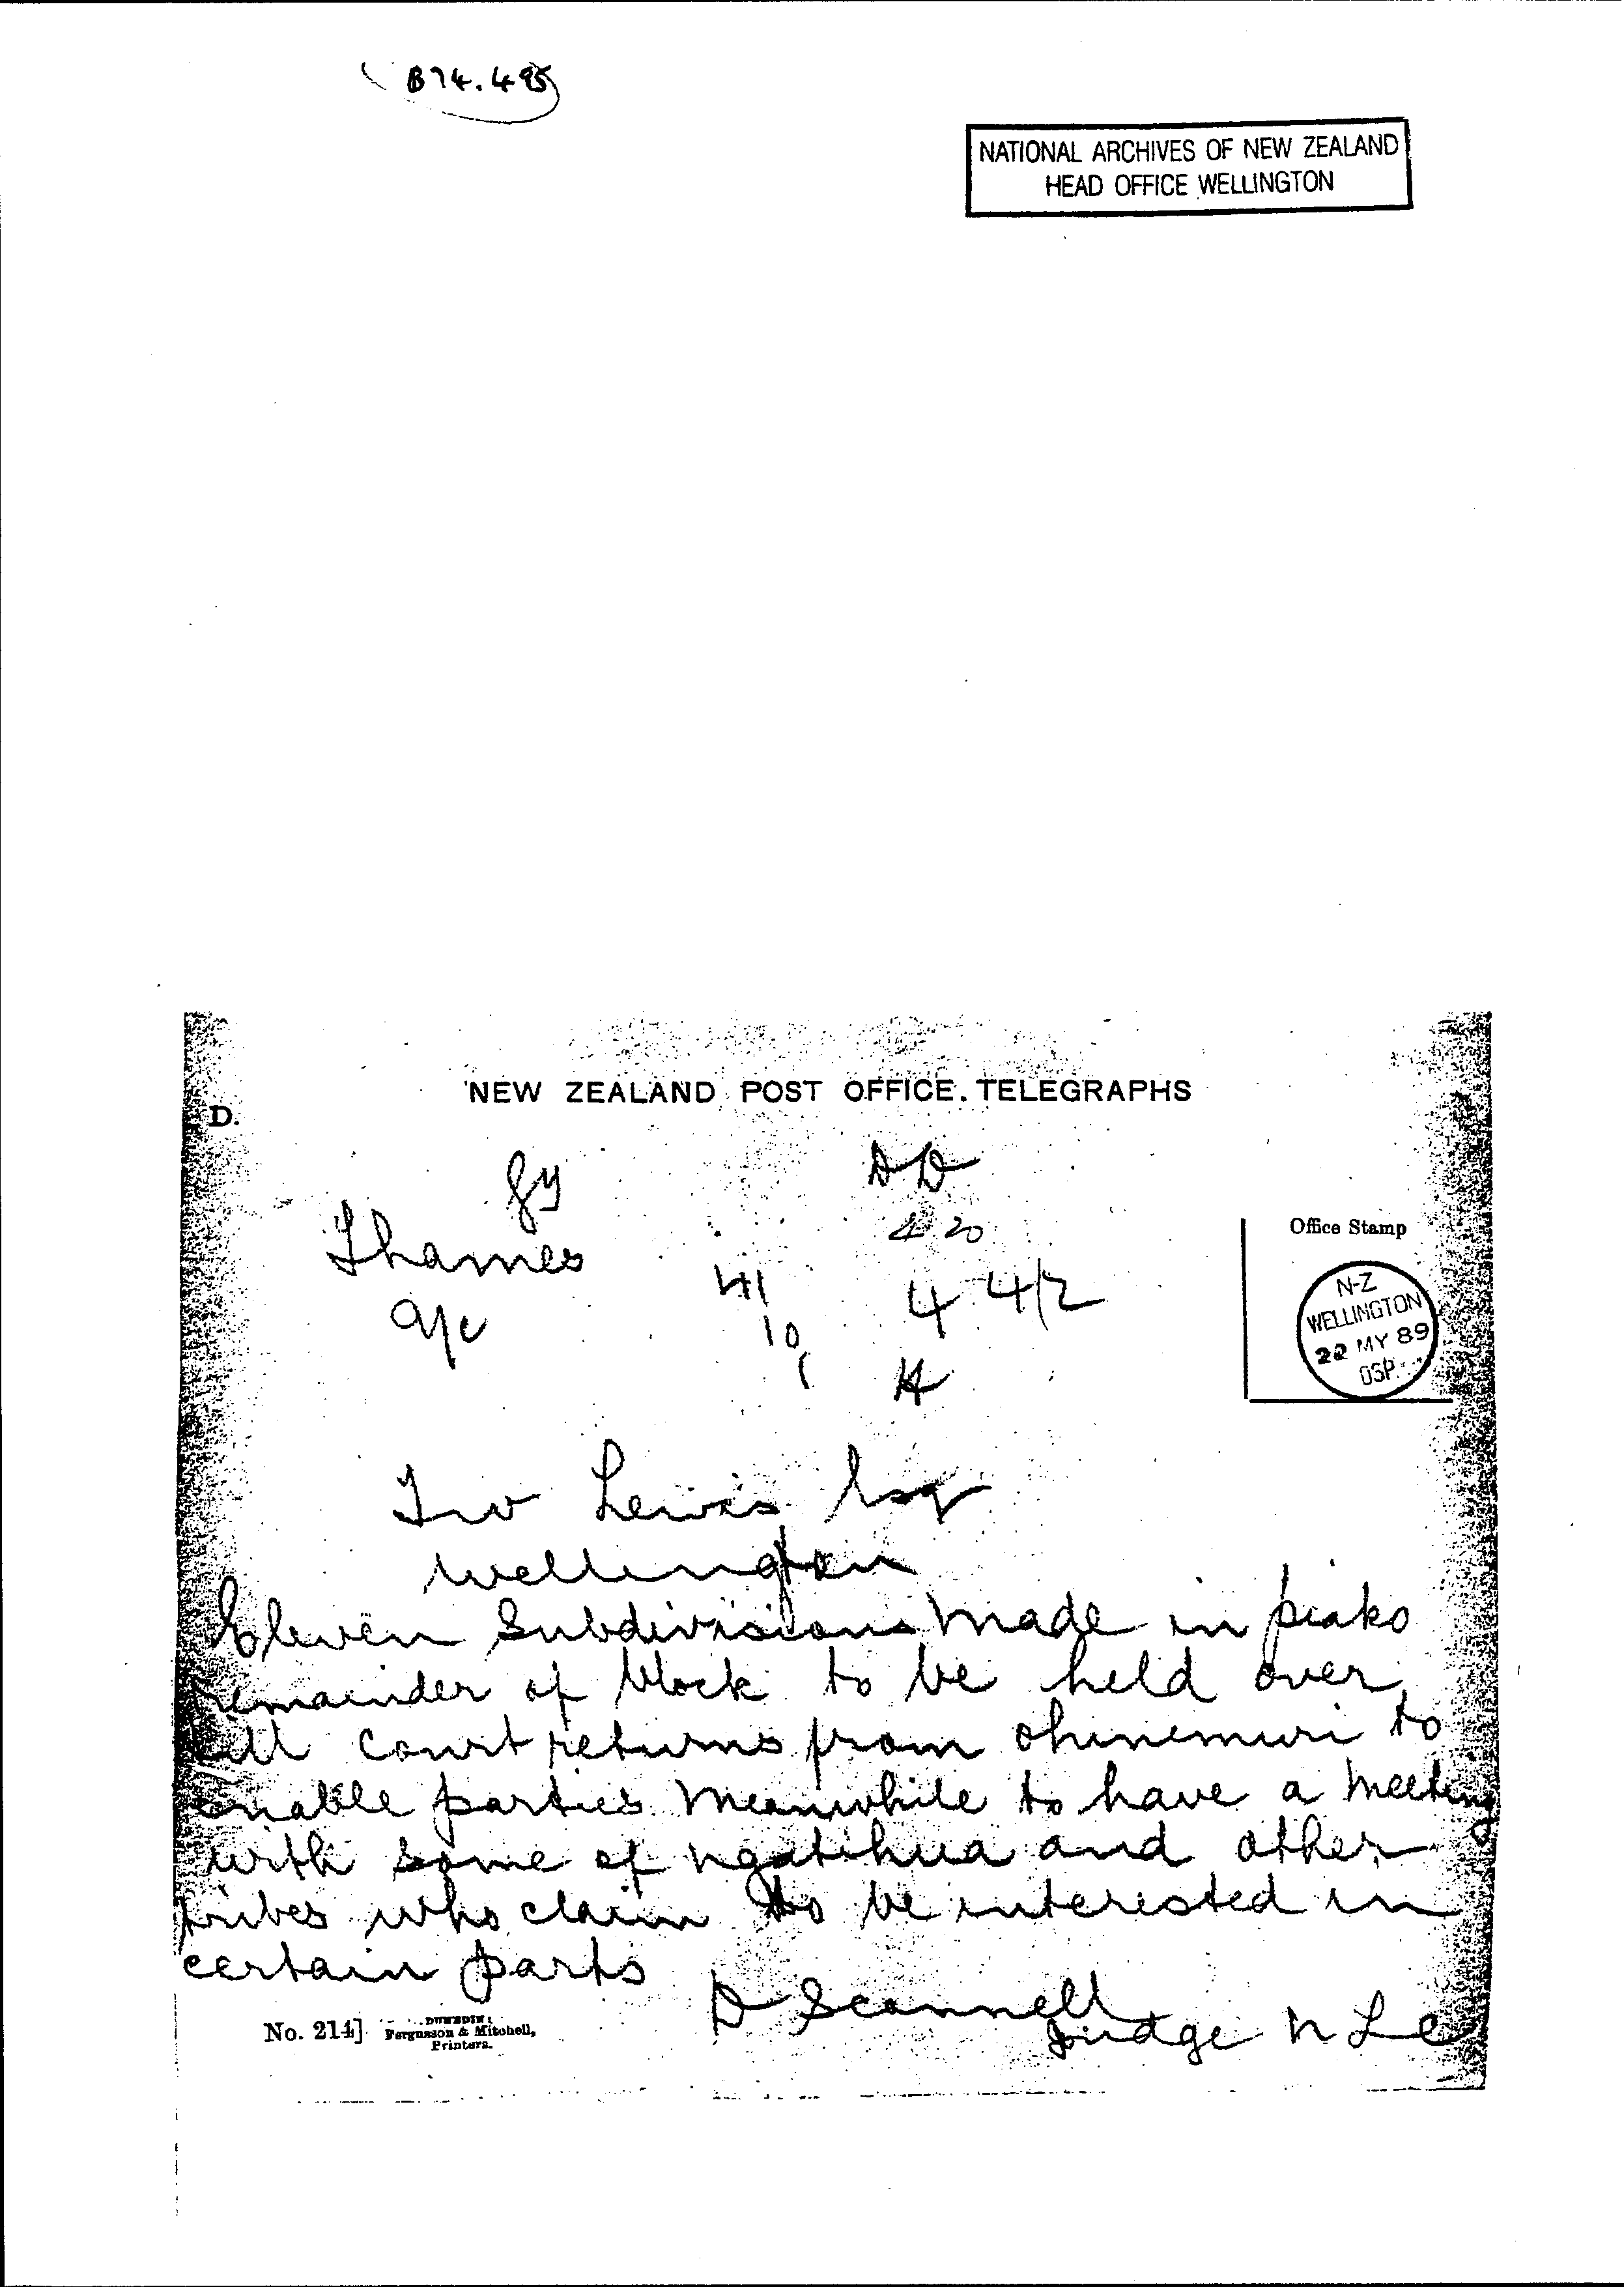 B74.495
NATIONAL ARCHIVES OF NEW ZEALAND
HEAD OFFICE WELLINGTON
NEW ZEALAND POST OFFICE. TELEGRAPHS
D.
DD
4.20
Thames
41
10
4 4/2
Office Stamp
N-Z
WELLINGTON
22 MY 89
OSP.
Lewis Esq
Wellington
Eleven Subdivisions made in piako
remainder of block to be held over
till court returns from ohinemuri to
enable parties meanwhile to have a meeting
with some of ngatihua and other
tribes who claim to be interested in
certain parts
D Scannell
Judge N L C
No. 214]
DUNEDIN:
Fergusson & Mitchell,
Printers.